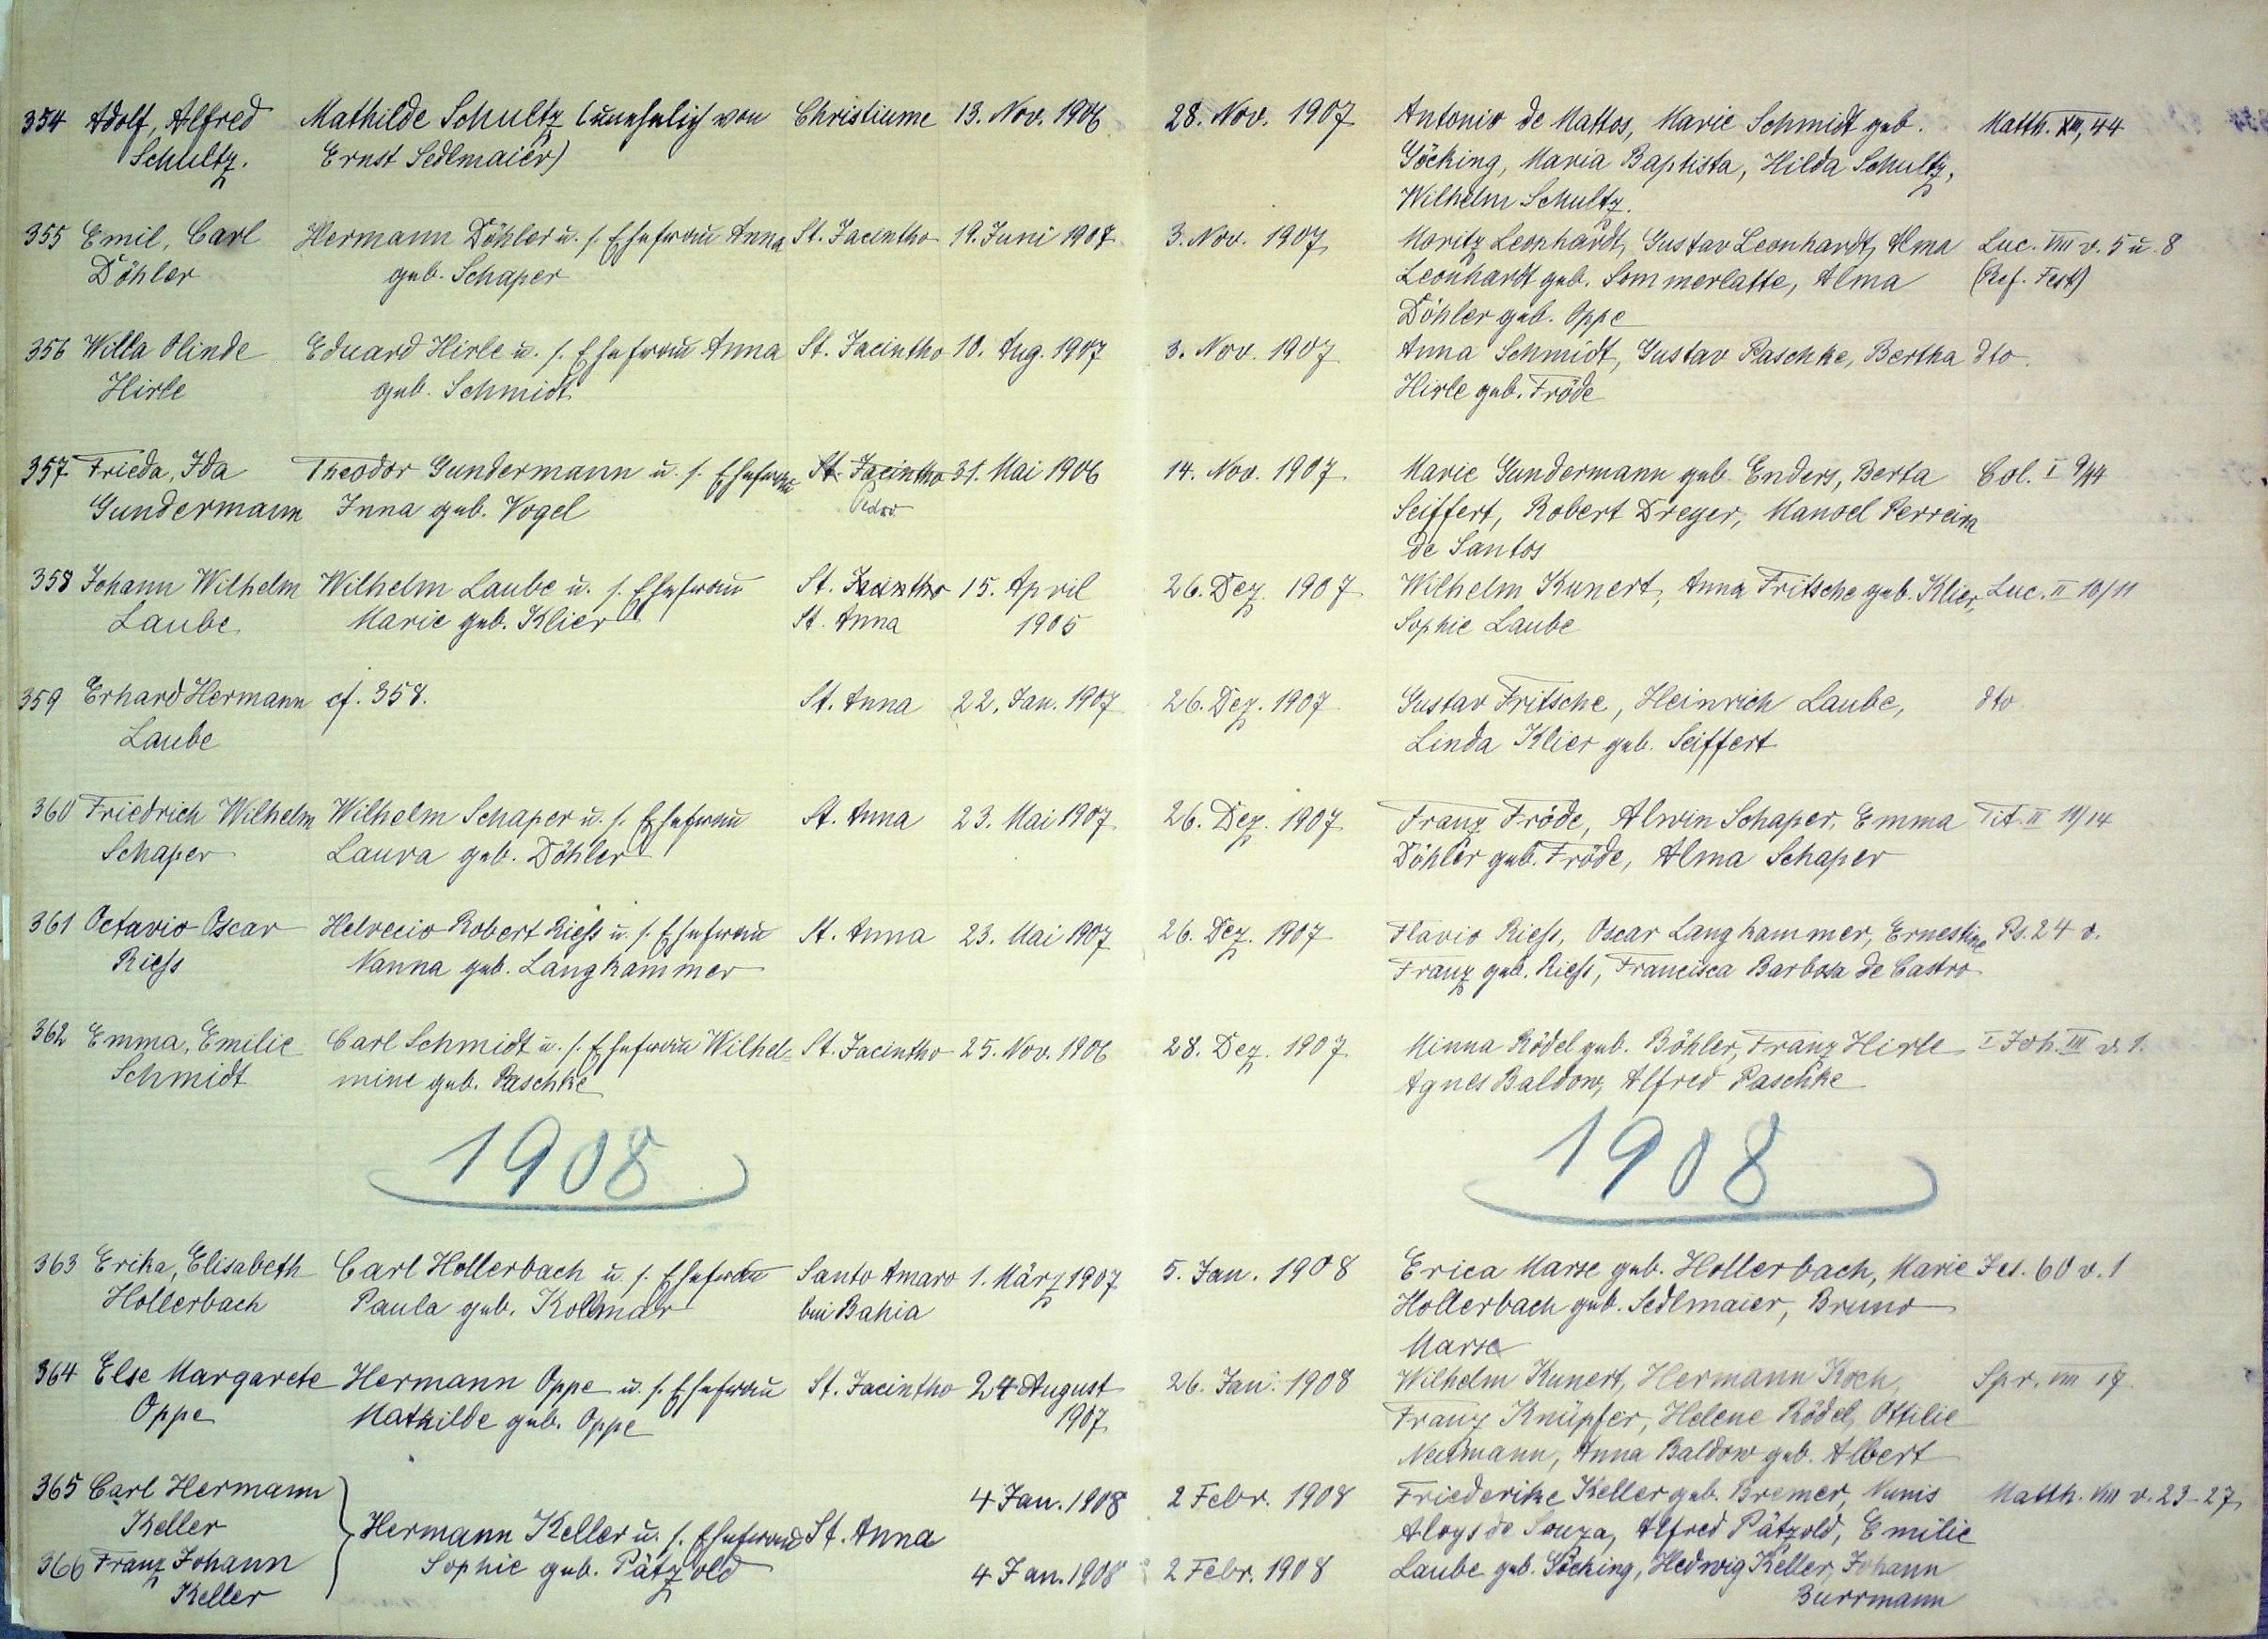 354 Adolf, Alfred Mathilde Schultz (unehelich von Christiume 13. Nov. 1906 28. Nov. 1907 Antonio de Mattos, Marie Schmidt geb. Matth. XIII, 44
Schultz. Ernst Sedlmaier) Göcking, Maria Baptista, Hilda Schultz,
Wilhelm Schultz.
355 Emil, Carl Hermann Döhler u. s. Ehefrau Anna St. Jacintho 19. Juni 1907 3. Nov. 1907 Moritz Leonhardt, Gustav Leonhardt, Alma Luc. VIII v. 5 u. 8
Döhler geb. Schaper Leonhardt geb. Sommerlatte, Alma (Ref. Fest)
Döhler geb. Oppe
356 Willa Olinde Eduard Hirle u. s. Ehefrau Anna St. Jacintho 10. Aug. 1907 3. Nov. 1907 Anna Schmidt, Gustav Paschke, Bertha dto.
Hirle geb. Schmidt Hirle geb. Fröde
357 Frieda, Ida Theodor Gundermann u. s. Ehefrau St. Jacintho 31. Mai 1906 14. Nov. 1907 Marie Gundermann geb. Enders, Berta Col. I 9/14
Gundermann Inna geb. Vogel Pedro Seiffert, Robert Dreyer, Manoel Perreira
de Santos
358 Johann Wilhelm Wilhelm Laube u. s. Ehefrau St. Jacintho 15. April 26. Dez. 1907 Wilhelm Kunert, Anna Fritsche geb. Klier, Luc. II 10/11
Laube Marie geb. Klier St. Anna 1905 Sophie Laube
359 Erhard Hermann cf. 358. St. Anna 22. Jan. 1907 26. Dez. 1907 Gustav Fritsche, Heinrich Laube, dto
Laube Linda Klier geb. Seiffert
360 Friedrich Wilhelm Wilhelm Schaper u. s. Ehefrau St. Anna 23. Mai 1907 26. Dez. 1907 Franz Fröde, Alwin Schaper, Emma Tit. II 11/14
Schaper Laura geb. Döhler Döhler geb. Fröde, Alma Schaper
361 Octavio Oscar Helvecio Robert Riess u. s. Ehefrau St. Anna 23. Mai 1907 26. Dez. 1907 Flavio Riess, Oscar Langhammer, Ernestine Ps. 24 v.
Riess Nanna geb. Langhammer Franz geb. Riess, Francisca Barbosa de Castro
362 Emma, Emilie Carl Schmidt u. s. Ehefrau Wilhel- St. Jacintho 25. Nov. 1906 28. Dez. 1907 Minna Rödel geb. Böhler, Franz Hirle I Joh. III v. 1.
Schmidt mine geb. Paschke Agnes Baldow, Alfred Paschke
1908 1908
363 Erika, Elisabeth Carl Hollerbach u. s. Ehefrau Santo Amaro 1. März 1907 5. Jan. 1908 Erica Marse geb. Hollerbach, Marie Jes. 60 v. 1
Hollerbach Paula geb. Kollmar bei Bahia Hollerbach geb. Sedlmaier, Bruno
Marse
364 Else Margarete Hermann Oppe u. s. Ehefrau St. Jacintho 24 August 26. Jan. 1908 Wilhelm Kunert, Hermann Koch, Spr. VIII 17
Oppe Mathilde geb. Oppe 1907 Franz Knüpfer, Helene Rödel, Ottilie
Neumann, Anna Baldow geb. Albert
365 Carl Hermann 4 Jan. 1908 2 Febr. 1908 Friederike Keller geb. Bremer, Nunis Matth. VIII v. 23-27
Keller Hermann Keller u. s. Ehefrau St. Anna Aloys de Souza, Alfred Pätzold, Emilie
366 Franz Johann Sophie geb. Pätzold 4 Jan. 1908 2 Febr. 1908 Laube geb. Göcking, Hedwig Keller, Johann
Keller Burrmann